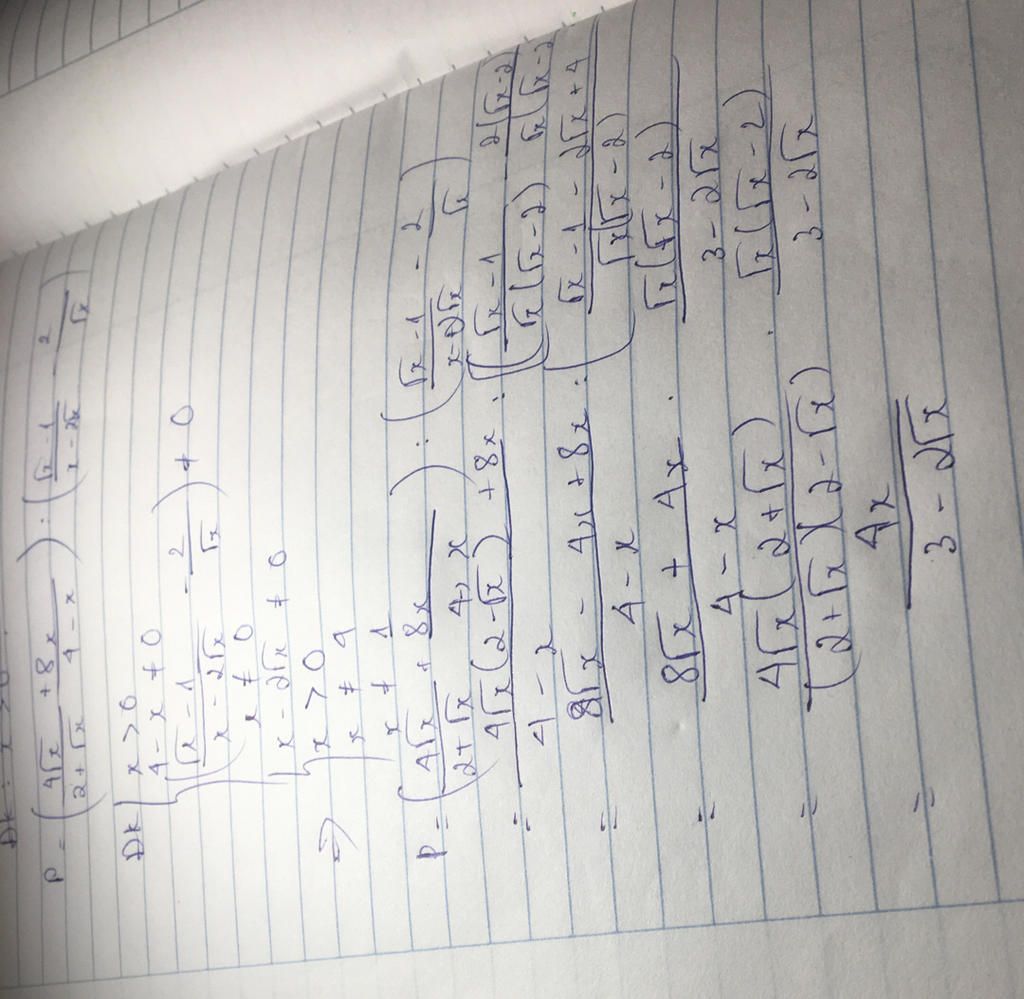 P = (4√x/(2+√x) + 8x/(4-x)) : ((√x-1)/(x-2√x) - 2/√x)
ĐK { x > 0
4 - x ≠ 0
((√x-1)/(x-2√x) - 2/√x) ≠ 0
x ≠ 0
x - 2√x ≠ 0
=> { x > 0
x ≠ 4
x ≠ 1
P = (4√x/(2+√x) + 8x/(4-x)) : ((√x-1)/(x-2√x) - 2/√x)
= (4√x(2-√x) + 8x)/(4-x) : ((√x-1)/(√x(√x-2)) - 2(√x-2)/(√x(√x-2
= (8√x - 4x + 8x)/(4-x) : (√x-1-2√x+4)/(√x(√x-2))
= (8√x + 4x)/(4-x) . √x(√x-2)/(3-2√x)
= 4√x(2+√x)/((2+√x)(2-√x)) . √x(√x-2)/(3-2√x)
= 4x/(3-2√x)